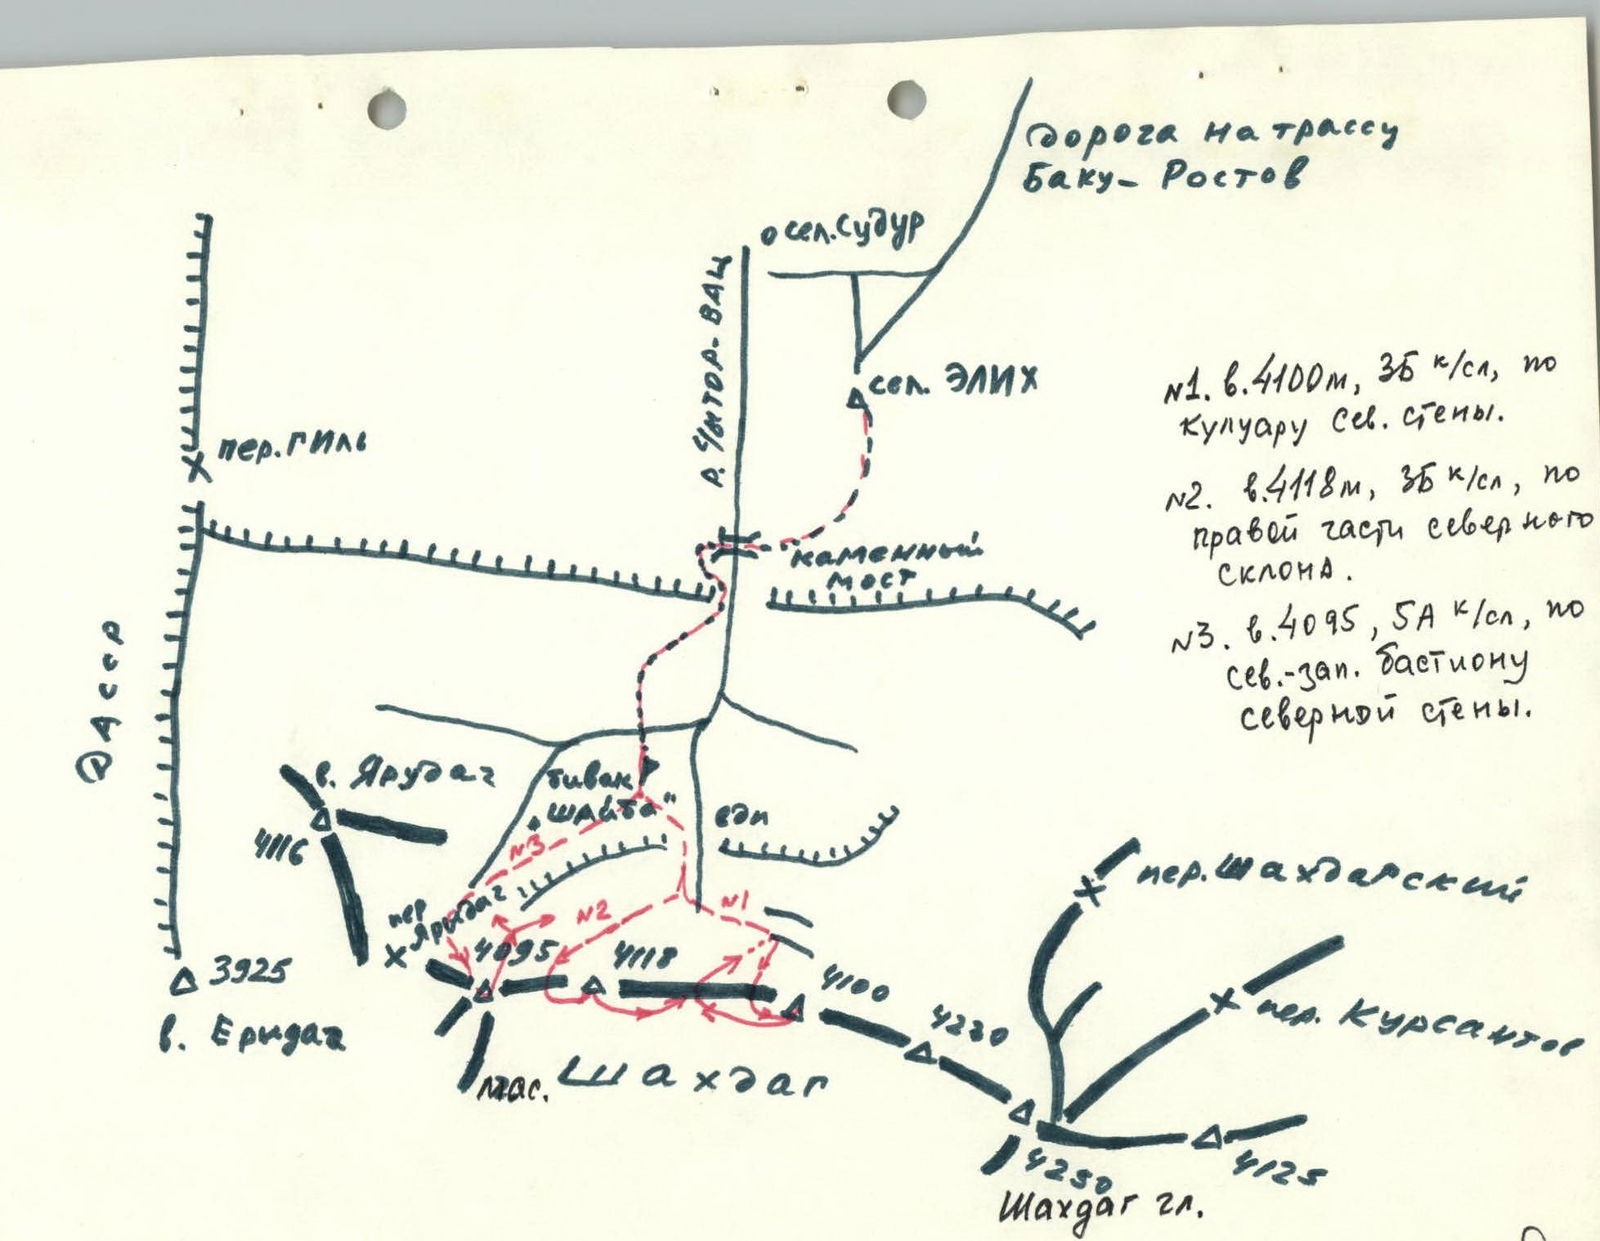 дорога на трассу
Баку- Ростов
сел. Судур
р. Чытор-вац
сел. ЭЛИХ
пер. ГИЛЬ
каменный
мост
N1. в.4100м, 3Б к/сл, по
кулуару сев. стены.
N2. в.4118м, 3Б к/сл, по
правой части северного
склона.
N3. в.4095, 5А к/сл, по
сев.-зап. бастиону
северной стены.
в. Ярудаг
4116
бивак
"Шайба"
N3
пер
Ярудаг
N2
N1
4095
4118
4100
4220
3925
в. Еридаг
мас. Шахдаг
пер. Шахдагский
пер. Курсантов
4250
4125
Шахдаг гл.